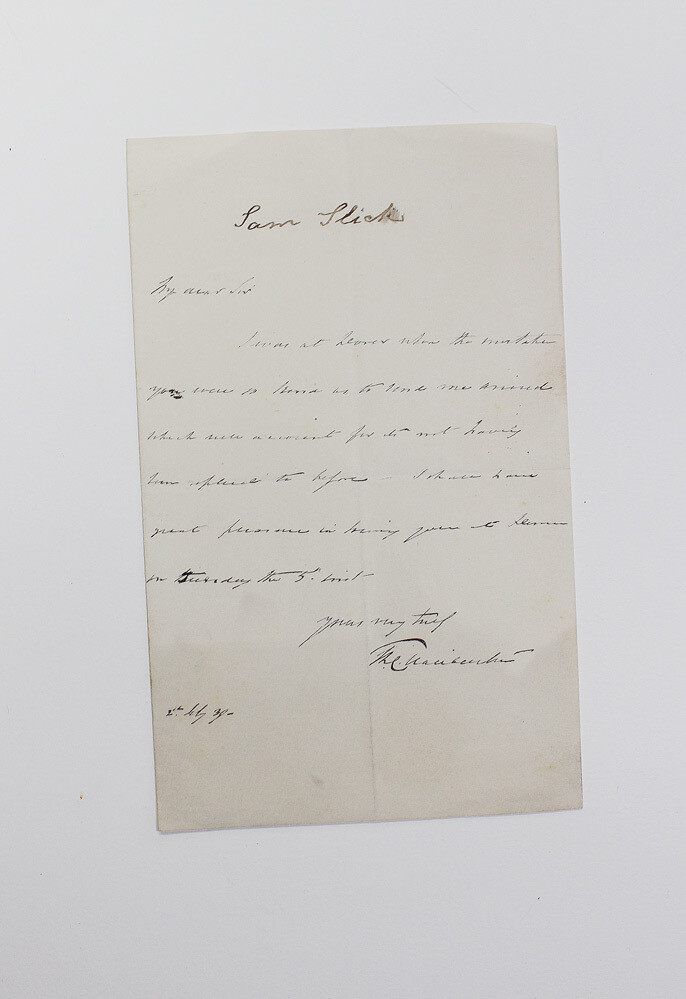 Sam Slick
My dear Sir
I was at Dover when the invitation
you were so kind as to send me arrived
which will account for its not having
been replied to before – I shall have
great pleasure in being you at
on Tuesday the 5th inst –
yours very truly
Th. C. Haliburton
2nd 39 –